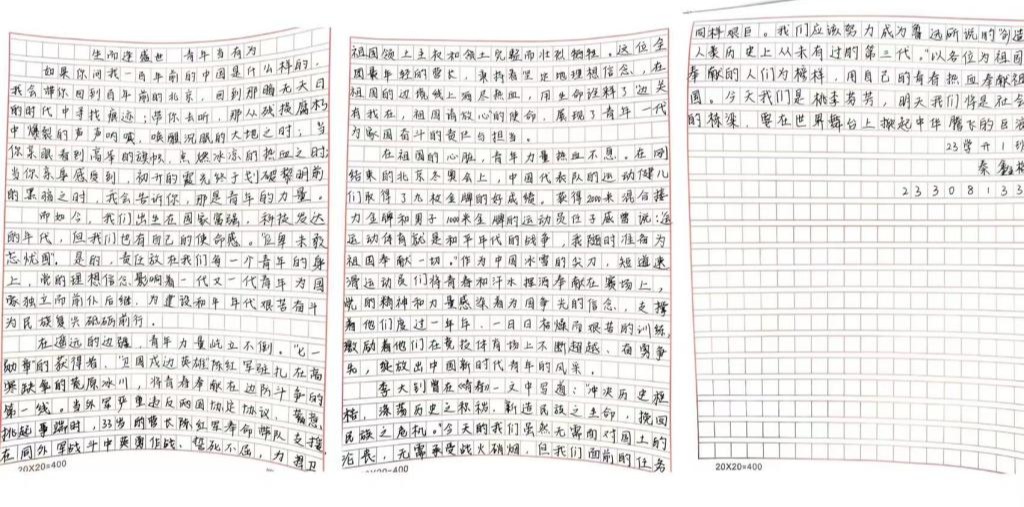 生而逢盛世 青年当有为
如果你问我一百年前的中国是什么样的,
我会带你回到百年前的北京,回到那暗无天日
的时代中寻找痕迹;带你去听,那从残援腐朽
中爆裂的声声呐喊,唤醒沉眠的大地之时;当
你亲眼看到高举的旗帜,点燃冰凉的热血之时;
当你亲身感受到,初升的霞光终于划破黎明前
的黑暗之时,我会告诉你,那是青年的力量。
而如今,我们出生在国家富强,科技发达
的年代,但我们也有自己的使命感。“位卑未敢
忘忧国”,是的,责任放在我们每一个青年的身
上,党的理想信念影响着一代又一代青年为国
家独立而前仆后继,为建设和平年代艰苦奋斗
为民族复兴砥砺前行。
在遥远的边疆,青年力量屹立不倒。“七一
勋章”的获得者,“卫国戍边英雄”陈红军驻扎在高
寒缺氧的荒原冰川,将青春奉献在边防斗争的
第一线。当外军严重违反两国协定协议,蓄意
挑起事端时,33岁的营长陈红军奉命带队支援
在同外军战斗中英勇作战、誓死不屈,为捍卫
祖国领土主权和领土完整而壮烈牺牲。这位全
团最年轻的营长,秉持着坚定地理想信念,在
祖国的边境线上洒尽热血,用生命诠释了“边关
有我在,祖国请放心”的使命,展现了青年一代
为家国奋斗的责任与担当。
在祖国的心脏,青年力量热血不息。在刚
结束的北京冬奥会上,中国代表队的运动健儿
们取得了九枚金牌的好成绩。获得2000米混合接
力金牌和男子1000米金牌的运动员任子威曾说:“运
动体育就是和平年代的战争,我随时准备为
祖国奉献一切。”作为中国冰雪的尖刀,短道速
滑运动员们将青春和汗水挥洒奉献在赛场上,
党的精神和力量感染着为国争光的信念,支撑
着他们度过一年年、一日日枯燥而艰苦的训练,
激励着他们在竞技体育场上不断超越、奋勇争
先,绽放出中国新时代青年的风采。
李大钊曾在《青春》一文中写道:“冲决历史桎
梏,涤荡历史之积秽,新造民族之生命,挽回
民族之危机。”今天的我们虽然无需面对国土的
沦丧,无需承受战火硝烟,但我们面前的任务
同样艰巨。我们应该努力成为鲁迅所说的“创造
人类历史上从未有过的第三代。”以各位为祖国
奉献的人们为榜样,用自己的青春热血奉献祖
国。今天我们是桃李芬芳,明天我们将是社会
的栋梁,要在世界舞台上掀起中华腾飞的巨浪
23学升1班
秦鑫
2330813
20×20=400
20×20=400
20×20=400